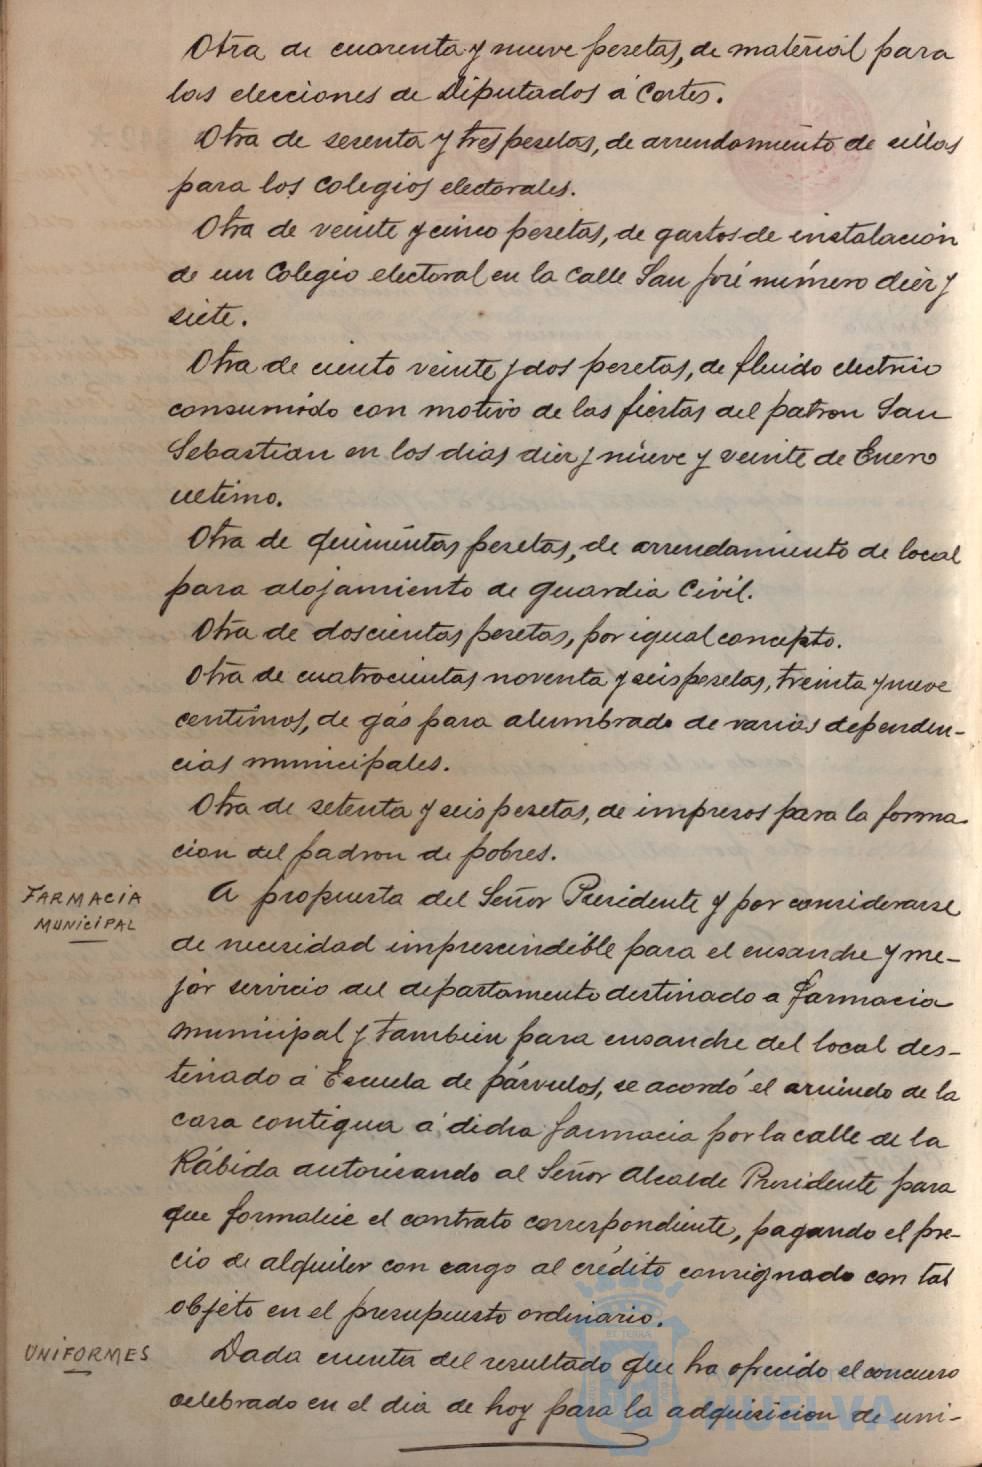 Otra de cuarenta y nueve pesetas, de material para
las elecciones de Diputados á Cortes.
Otra de sesenta y tres pesetas, de arrendamiento de sillas
para los colegios electorales.
Otra de veinte y cinco pesetas, de gastos de instalación
de un Colegio electoral en la calle San José número diez y
siete.
Otra de ciento veinte y dos pesetas, de fluido electrico
consumido con motivo de las fiestas del patron San
Sebastian en los dias diez y nueve y veinte de Enero
ultimo.
Otra de quinientas pesetas, de arrendamiento de local
para alojamiento de guardia Civil.
Otra de doscientas pesetas, por igual concepto.
Otra de cuatrocientas noventa y seis pesetas, treinta y nueve
centimos, de gás para alumbrado de varias dependen-
cias municipales.
Otra de setenta y seis pesetas, de impresos para la forma-
cion del padron de pobres.
FARMACIA
MUNICIPAL
A propuesta del Señor Presidente y por considerarse
de necesidad imprescindible para el ensanche y me-
jor servicio del departamento destinado a farmacia
municipal y tambien para ensanche del local des-
tinado á Escuela de párvulos, se acordó el arriendo de la
casa contigua á dicha farmacia por la calle de la
Rábida autorizando al Señor Alcalde Presidente para
que formalice el contrato correspondiente, pagando el pre-
cio de alquiler con cargo al crédito consignado con tal
objeto en el presupuesto ordinario.
UNIFORMES
Dada cuenta del resultado que ha ofrecido el concurso
celebrado en el dia de hoy para la adquisicion de uni-
HUELVA